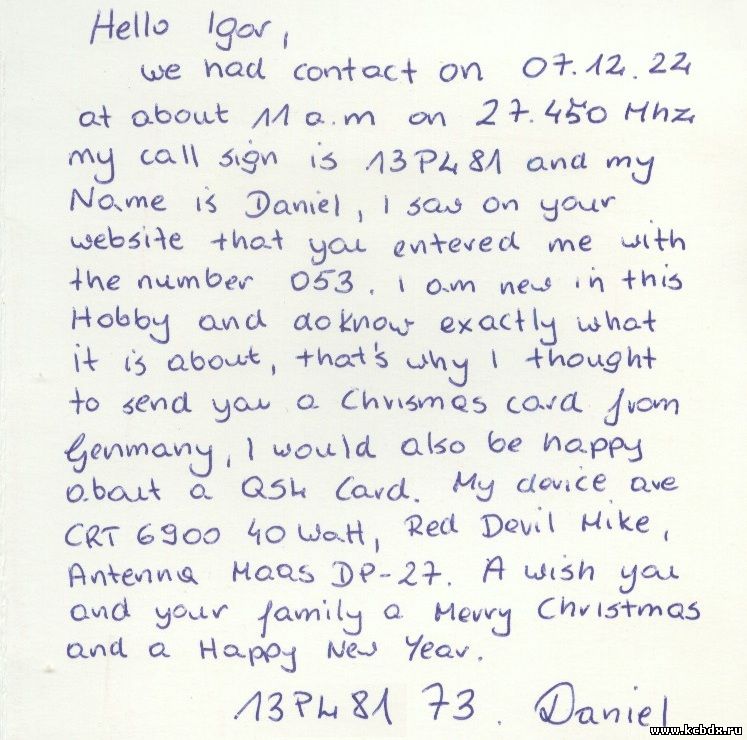 Hello Igor,
we had contact on 07.12.22
at about 11 a.m on 27.450 Mhz
my call sign is 13PL481 and my
Name is Daniel, I saw on your
website that you entered me with
the number 053. I am new in this
Hobby and do know exactly what
it is about, that's why I thought
to send you a Chrismas card from
Genmany, I would also be happy
about a QSL Card. My device are
CRT 6900 40 Watt, Red Devil Mike,
Antenna Maas DP-27. A wish you
and your family a Merry Christmas
and a Happy New Year.
13PL481 73. Daniel
www.kcbdx.ru